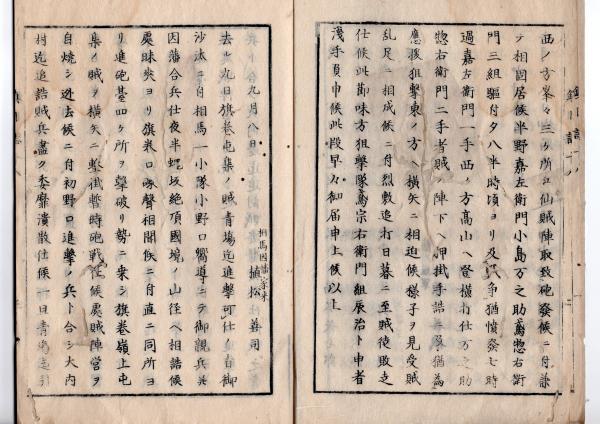 西ノ方峯々三ケ所ニ仙賊陣取致砲發候ニ付
テ相固居候半野嘉左衛門小島万之助鳶惣右衛
門三組驅付夕八半時頃ヨリ及戦争憤發七時
過嘉左衛門一手西ノ方高山ヘ登横打仕万之助
惣右衛門二手者賊ノ陣下ヘ押掛手詰ニ及猶為
應援狙撃東ノ方ヘ横矢ニ相迫候様子ヲ見受賊
乱足ニ相成候ニ付烈敷追打日暮ニ至賊徒敗走
仕候此節味方狙撃隊鳶宗右衛門組辰治ト申者
浅手負申候此段早々御届申上候以上
九月八日
相馬因幡家来
植松
去ル九日旗巻屯集ノ賊青塲迄進撃可仕ノ旨御
沙汰ニ付相馬一小隊小野口嚮導ニテ御親兵
因藩合兵仕夜半蛇坂絶頂國境ノ山径ヘ相詰候
處昧爽ヨリ旗巻口砲聲相聞候ニ付直ニ同所ヨ
リ進砲基四ケ所ヲ撃破リ勢ニ乗シ旗巻嶺上屯
集ノ賊ヲ横矢ニ撃掛暫時砲戦仕候處賊陣営ヲ
自焼シ逃去候ニ付初野口進撃ノ兵ト合シ大内
村迄追詰賊兵盡ク委靡潰散仕候